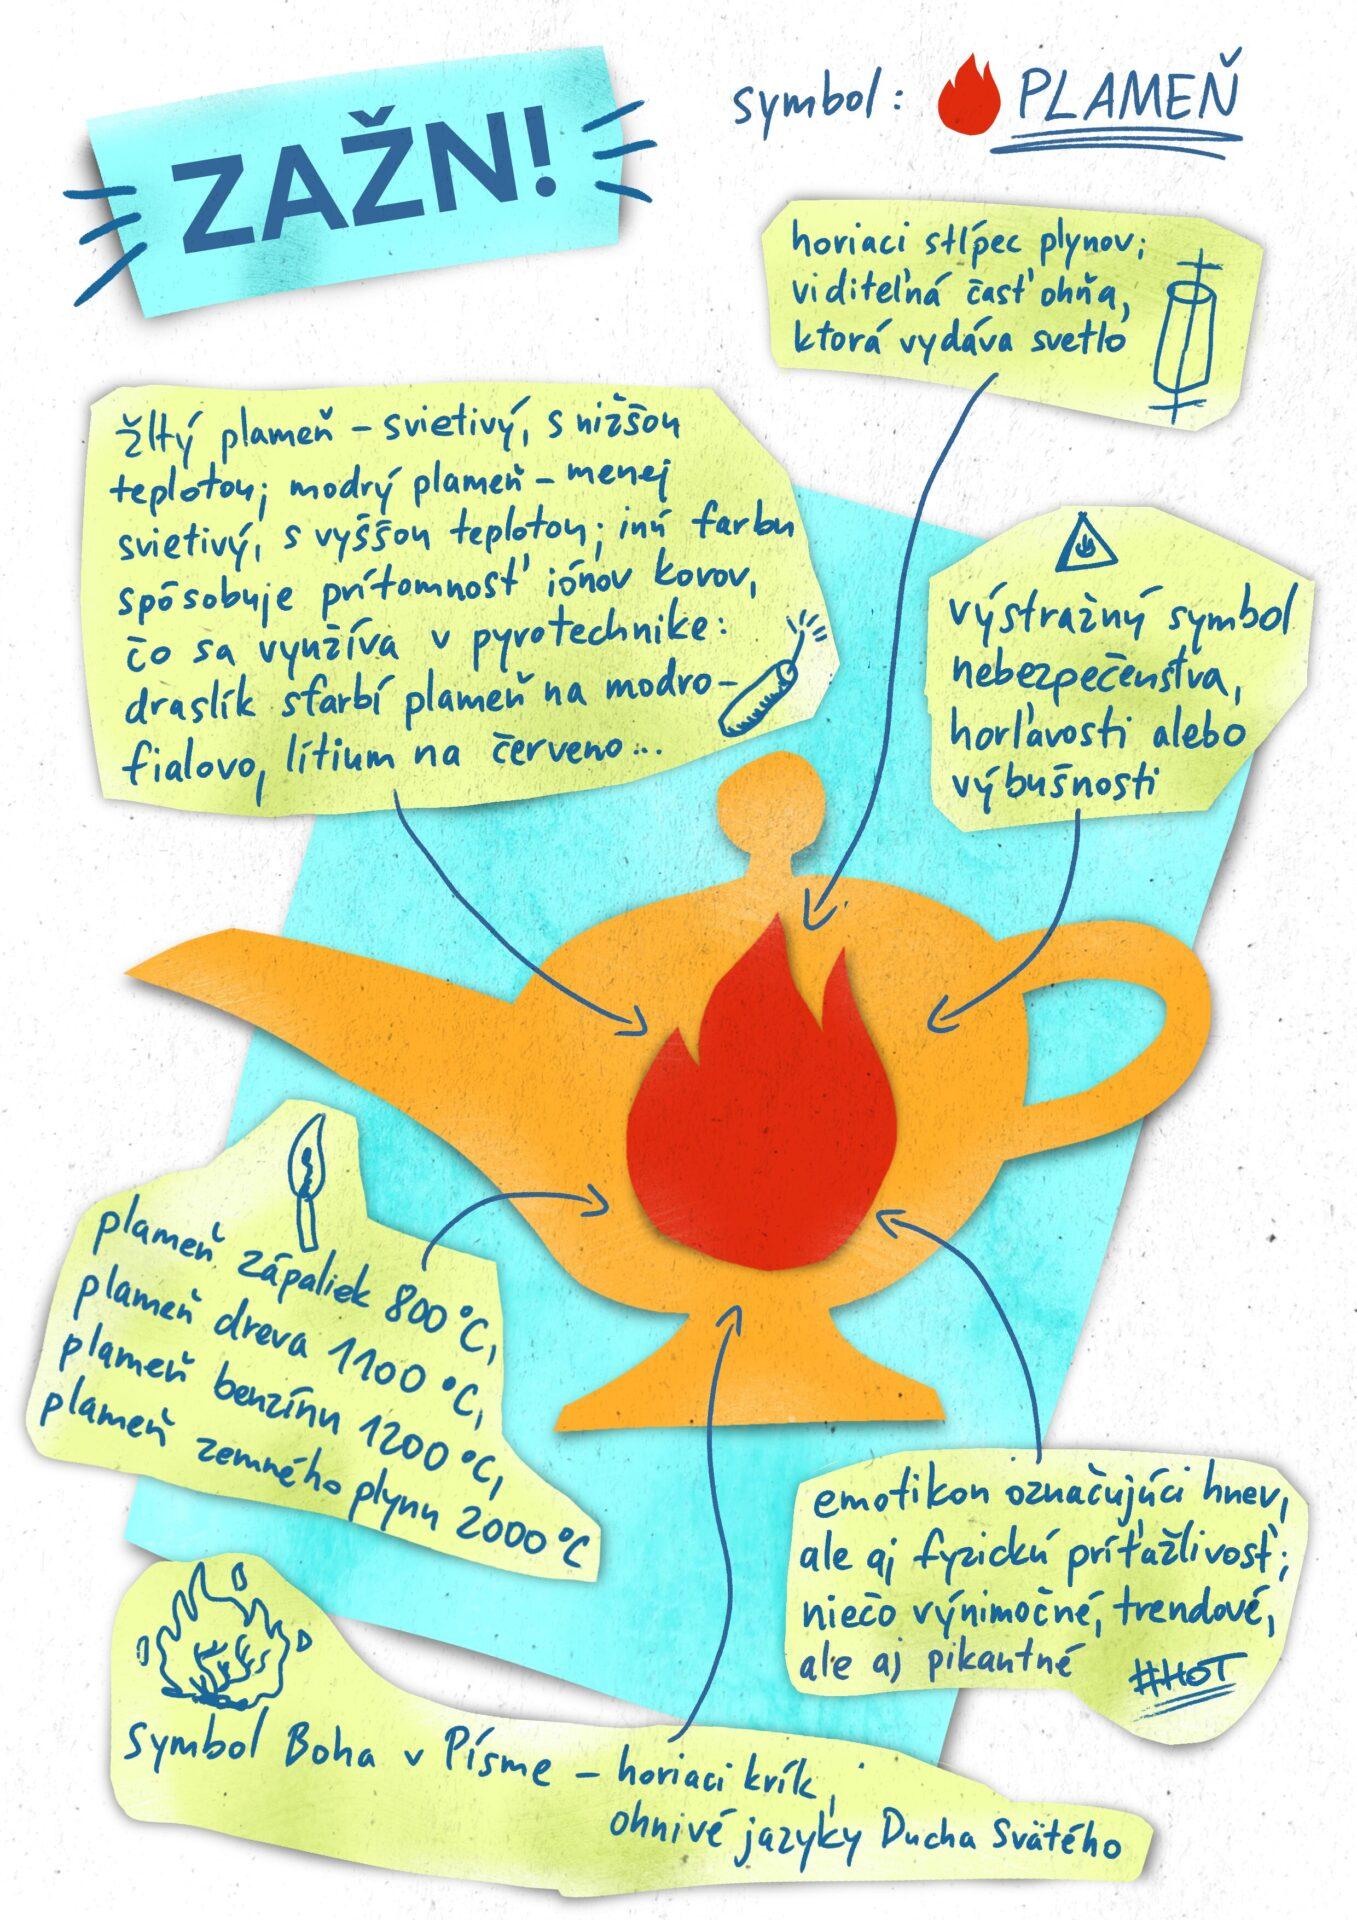 ZAŽN!
symbol: PLAMEŇ
horiaci stĺpec plynov;
viditeľná časť ohňa,
ktorá vydáva svetlo
žltý plameň – svietivý, s nižšou
teplotou; modrý plameň – menej
svietivý, s vyššou teplotou; inú farbu
spôsobuje prítomnosť iónov kovov,
čo sa využíva v pyrotechnike:
draslík sfarbí plameň na modro–
fialovo, lítium na červeno...
výstražný symbol
nebezpečenstva,
horľavosti alebo
výbušnosti
plameň zápaliek 800 °C,
plameň dreva 1100 °C,
plameň benzínu 1200 °C,
plameň zemného plynu 2000 °C
emotikon označujúci hnev,
ale aj fyzickú príťažlivosť;
niečo výnimočné, trendové,
ale aj pikantné
#HOT
symbol Boha v Písme – horiaci krík,
ohnivé jazyky Ducha Svätého